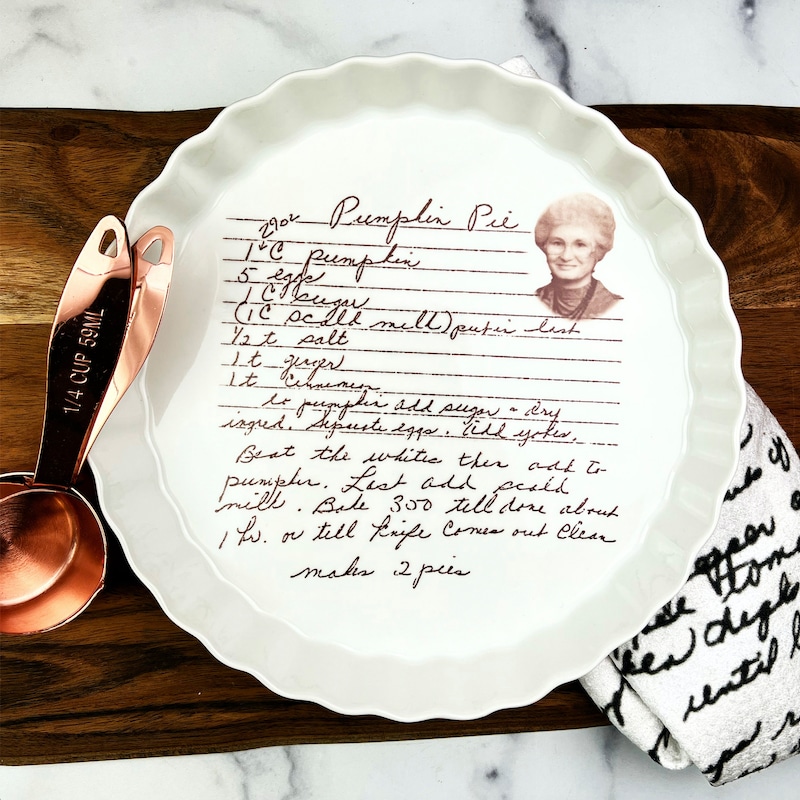 Pumpkin Pie
29oz
1 C pumpkin
5 eggs
1 C sugar
(1 C scald milk) put in last
½ t salt
1 t ginger
1 t Cinnemon
to pumpkin add sugar & dry
ingred. Seperate eggs. Add yokes.
Beat the whites then add to
pumpkin. Last add scald
milk. Bake 350 tell done about
1 hr. or tell Knife Comes out Clean
makes 2 pies
1/4 CUP 59ML
until